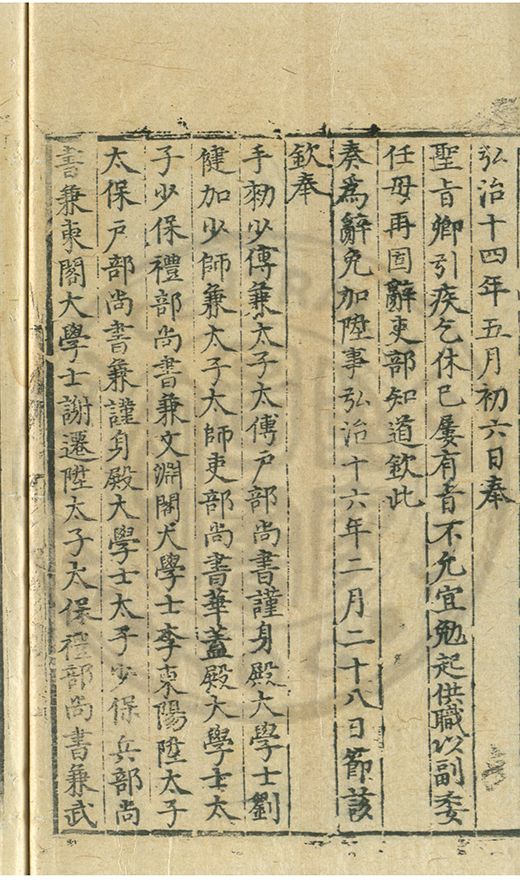 弘治十四年五月初六日奉
聖旨卿引疾乞休已屡有旨不允宜勉起供職以副委
任毋再固辭吏部知道欽此
奏爲辭免加陞事弘治十六年二月二十八日節該
欽奉
手勑少傅兼太子太傅户部尚書謹身殿大學士劉
健加少師兼太子太師吏部尚書華蓋殿大學士太
子少保禮部尚書兼文淵閣大學士李東陽陞太子
太保户部尚書兼謹身殿大學士太子少保兵部尚
書兼東閣大學士謝遷陞太子太保禮部尚書兼武